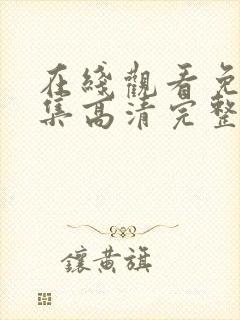 在綫觀看免
集高清完整
鑲黄旗